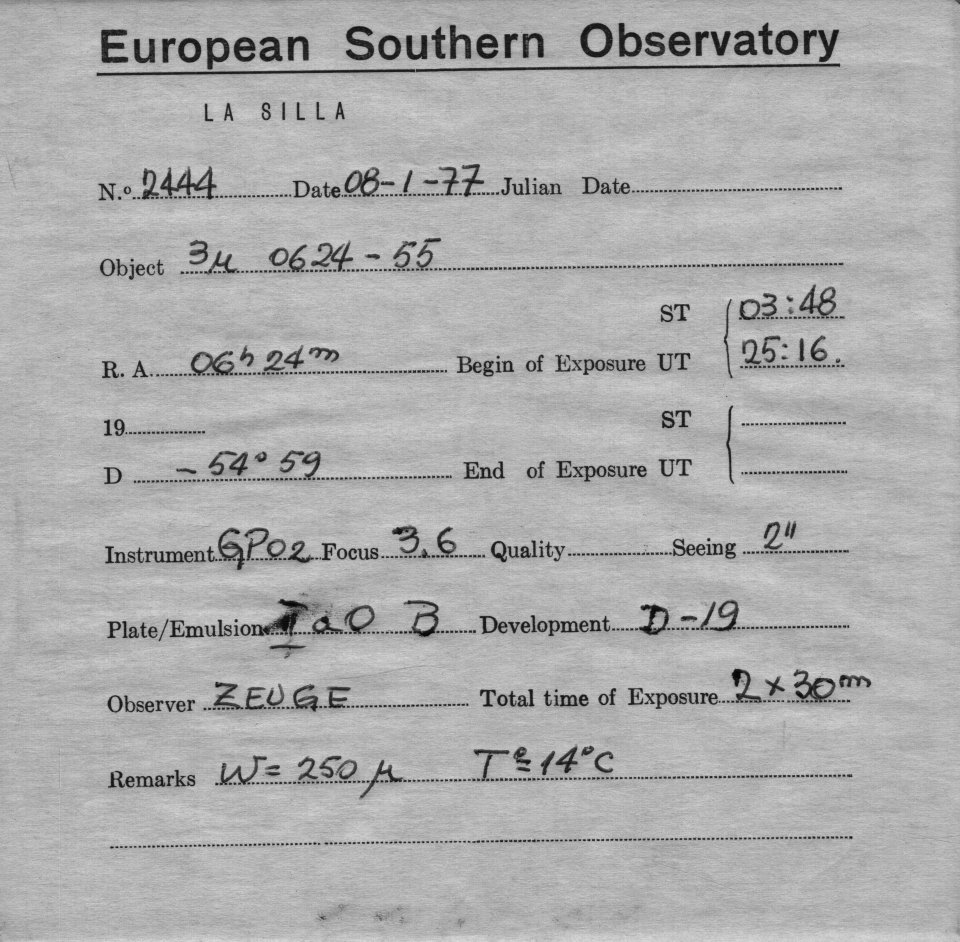 European Southern Observatory
LA SILLA
N.º 2444 Date 08-1-77 Julian Date
Object 3µ 0624-55
ST 03:48
R. A. 06h 24m Begin of Exposure UT 25:16.
19 ST
D -54° 59 End of Exposure UT
Instrument GPO2 Focus 3.6 Quality Seeing 2"
Plate/Emulsion IaO B Development D-19
Observer ZEUGE Total time of Exposure 2x30m
Remarks W= 250 µ T°=14°C